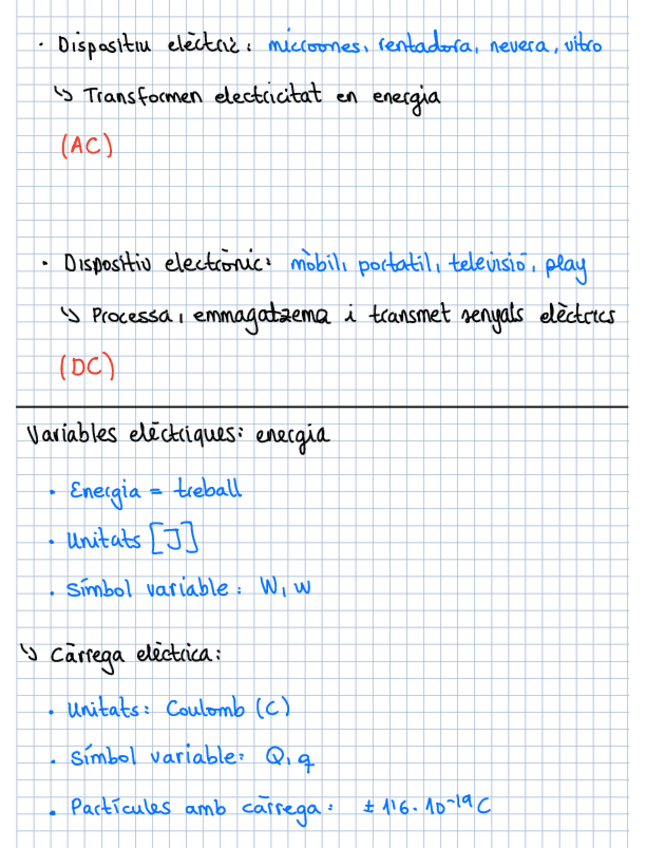 · Dispositiu elèctric: microones, rentadora, nevera, vitro
↳ Transformen electricitat en energia
(AC)
· Dispositiu electrònic: mòbil, portatil, televisió, play
↳ Processa, emmagatzema i transmet senyals elèctrics
(DC)
Variables elèctriques: energia
· Energia = treball
· Unitats [J]
· Símbol variable: W, w
↳ Càrrega elèctrica:
· Unitats: Coulomb (C)
· Símbol variable: Q, q
· Partícules amb càrrega: ± 1'6 · 10⁻¹⁹ C